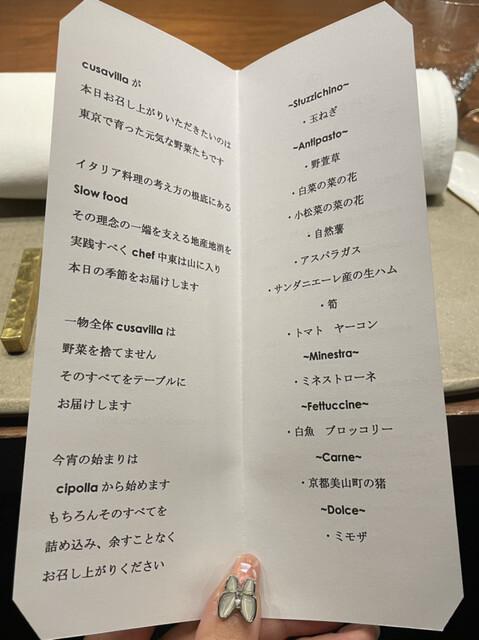 cusavilla が
本日お召し上がりいただきたいのは
東京で育った元気な野菜たちです
イタリア料理の考え方の根底にある
Slow food
その理念の一端を支える地産地消を
実践すべく chef 中東は山に入り
本日の季節をお届けします
一物全体 cusavilla は
野菜を捨てません
そのすべてをテーブルに
お届けします
今宵の始まりは
cipolla から始めます
もちろんそのすべてを
詰め込み、余すことなく
お召し上がりください
~Stuzzichino~
・玉ねぎ
~Antipasto~
・野萱草
・白菜の菜の花
・小松菜の菜の花
・自然薯
・アスパラガス
・サンダニエーレ産の生ハム
・筍
・トマト ヤーコン
~Minestra~
・ミネストローネ
~Fettuccine~
・白魚 ブロッコリー
~Carne~
・京都美山町の猪
~Dolce~
・ミモザ